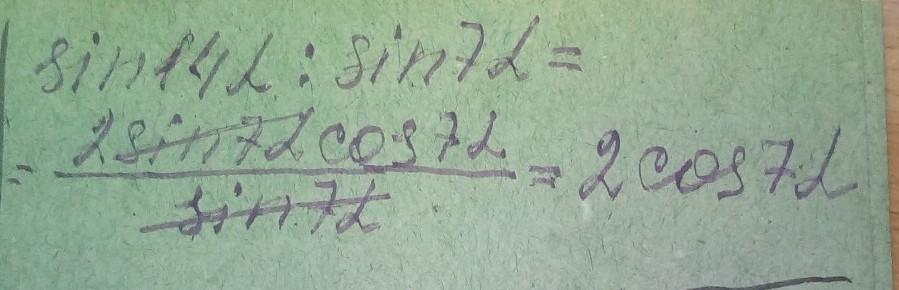 sin14α : sin7α =
= 2sin7αcos7α / sin7α = 2cos7α